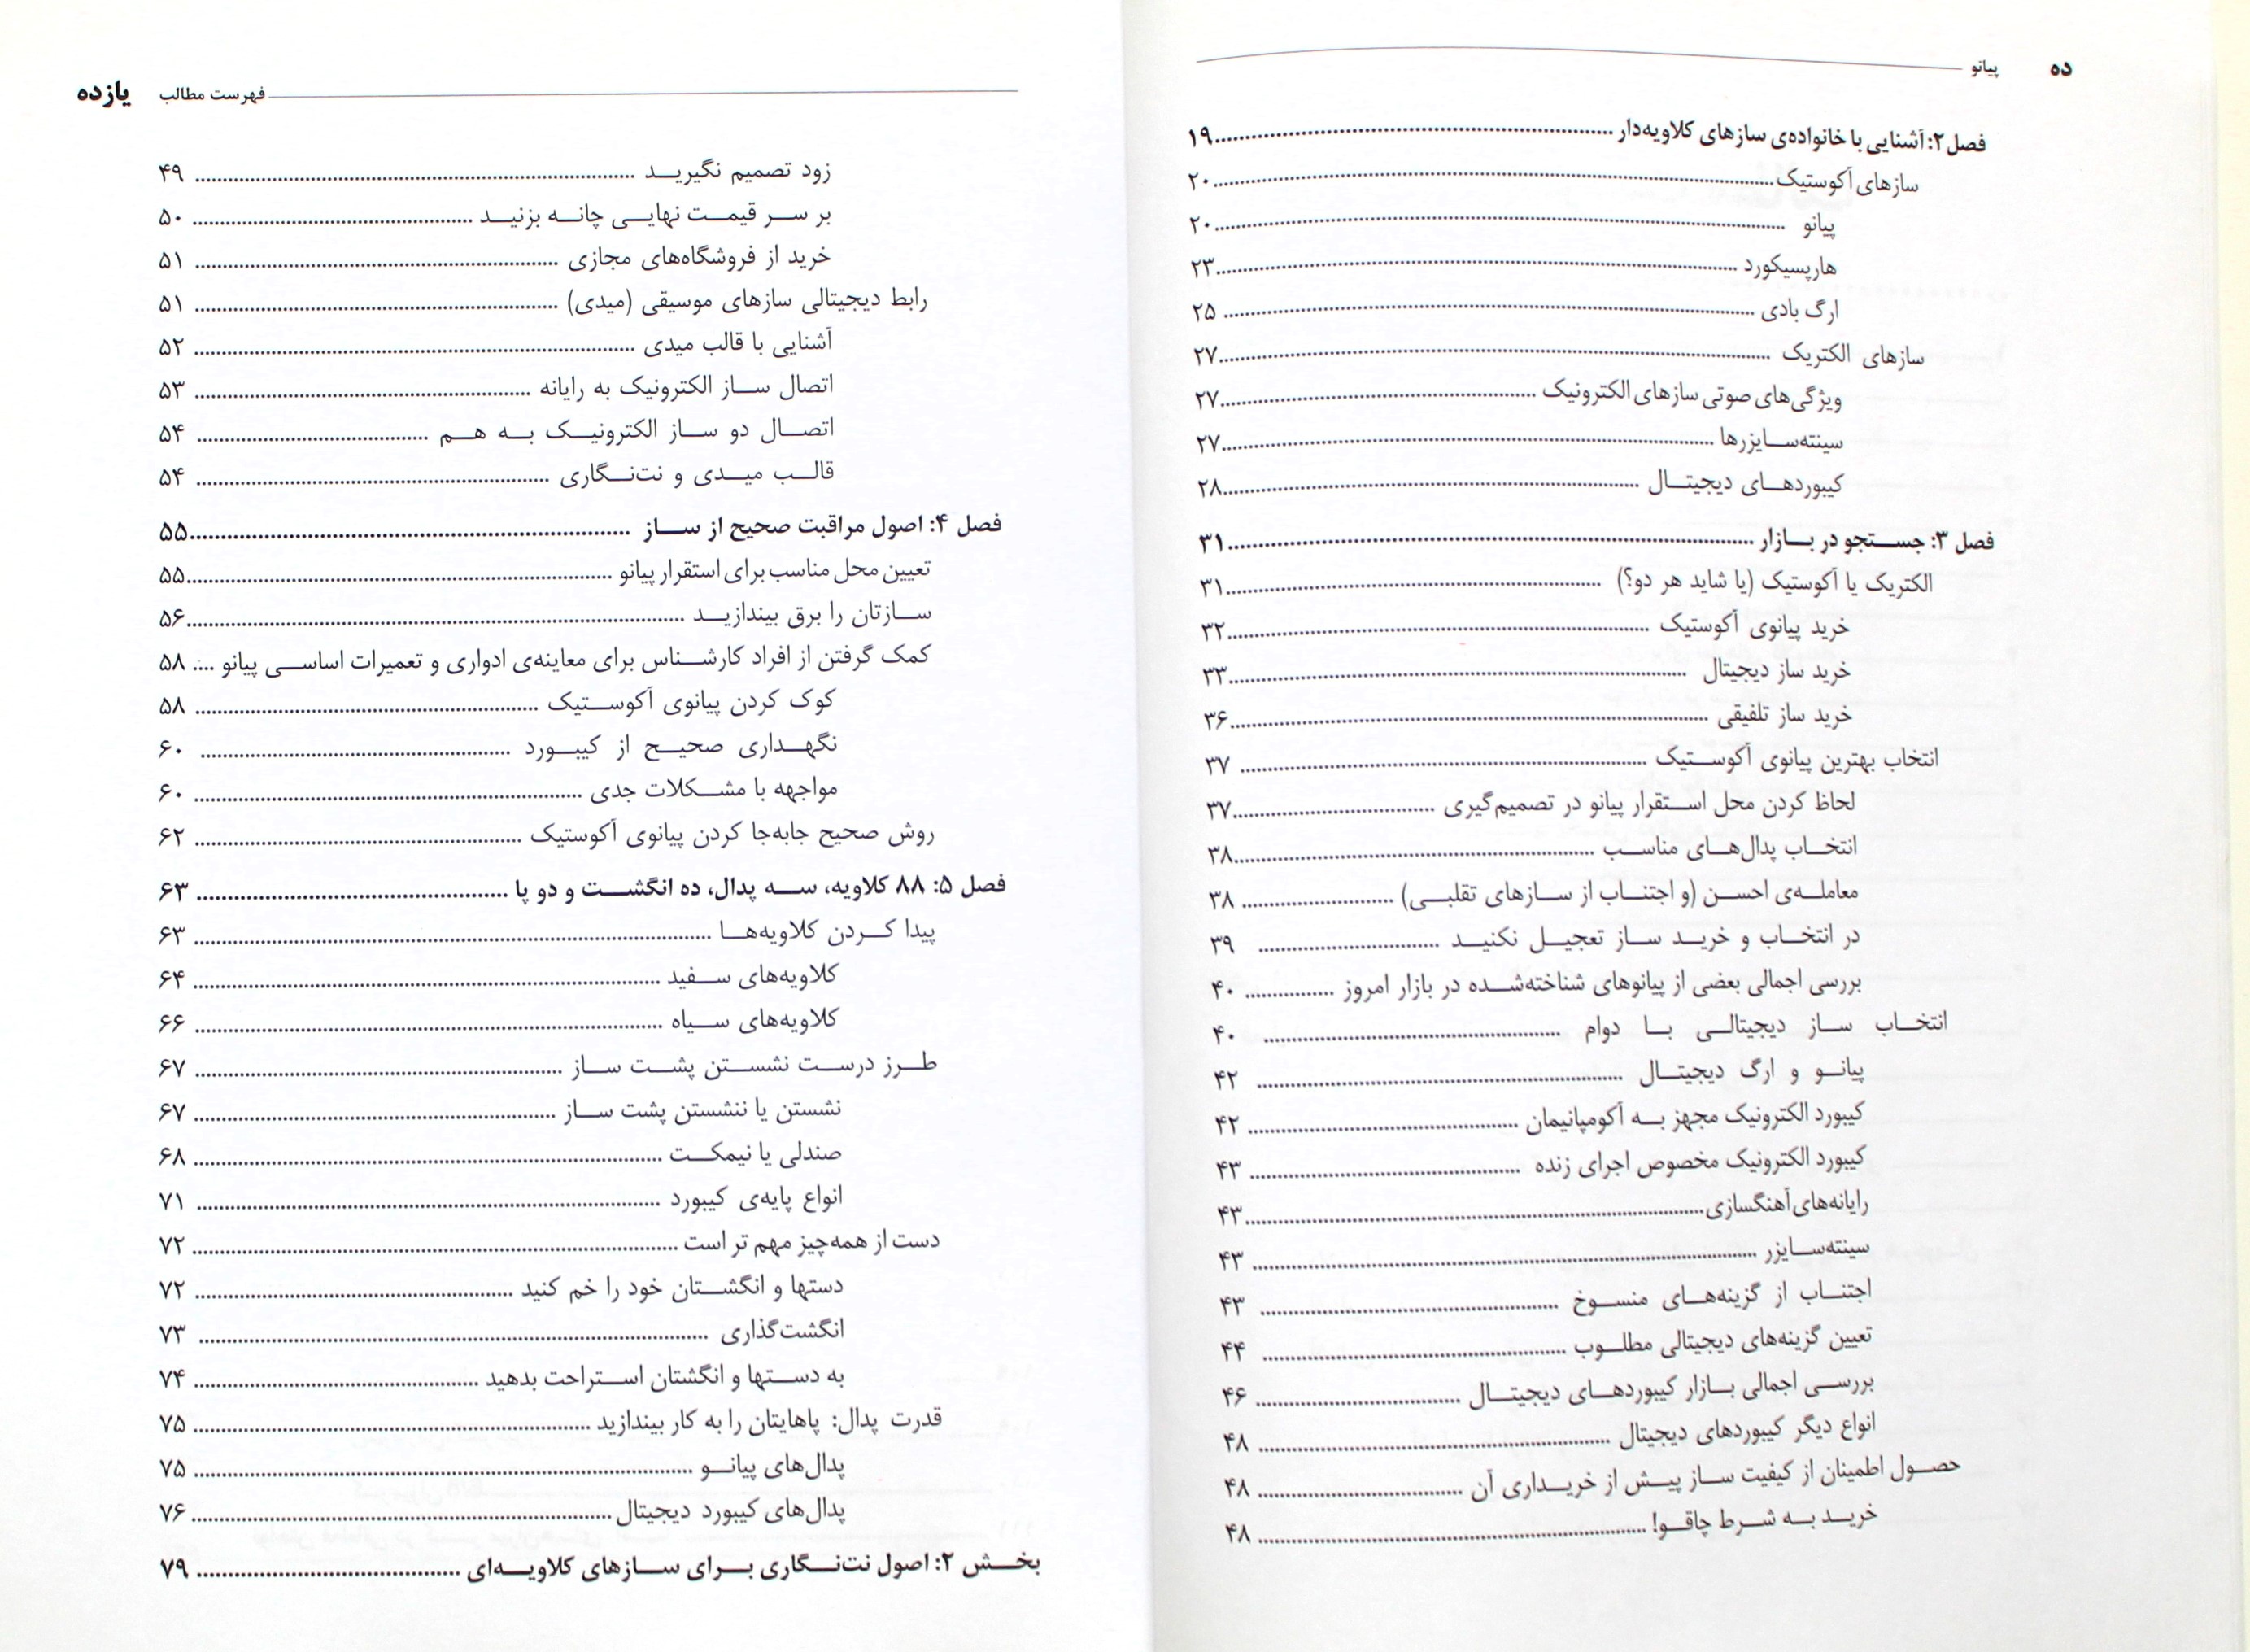 ده پیانو
فصل ۲: آشنایی با خانواده‌ی سازهای کلاویه‌دار ۱۹
سازهای آکوستیک ۲۰
پیانو ۲۰
هارپسیکورد ۲۳
ارگ بادی ۲۵
سازهای الکتریک ۲۷
ویژگی‌های صوتی سازهای الکترونیک ۲۷
سینته‌سایزرها ۲۷
کیبوردهای دیجیتال ۲۸
فصل ۳: جستجو در بازار ۳۱
الکتریک یا آکوستیک (یا شاید هر دو؟) ۳۱
خرید پیانوی آکوستیک ۳۲
خرید ساز دیجیتال ۳۳
خرید ساز تلفیقی ۳۶
انتخاب بهترین پیانوی آکوستیک ۳۷
لحاظ کردن محل استقرار پیانو در تصمیم‌گیری ۳۷
انتخاب پدال‌های مناسب ۳۸
معامله‌ی احسن (و اجتناب از سازهای تقلبی) ۳۸
در انتخاب و خرید ساز تعجیل نکنید ۳۹
بررسی اجمالی بعضی از پیانوهای شناخته‌شده در بازار امروز ۴۰
انتخاب ساز دیجیتالی با دوام ۴۰
پیانو و ارگ دیجیتال ۴۲
کیبورد الکترونیک مجهز به آکومپانیمان ۴۲
کیبورد الکترونیک مخصوص اجرای زنده ۴۳
رایانه‌های آهنگسازی ۴۳
سینته‌سایزر ۴۳
اجتناب از گزینه‌های منسوخ ۴۳
تعیین گزینه‌های دیجیتالی مطلوب ۴۴
بررسی اجمالی بازار کیبوردهای دیجیتال ۴۶
انواع دیگر کیبوردهای دیجیتال ۴۸
حصول اطمینان از کیفیت ساز پیش از خریداری آن ۴۸
خرید به شرط چاقو! ۴۸
فهرست مطالب یازده
زود تصمیم نگیرید ۴۹
بر سر قیمت نهایی چانه بزنید ۵۰
خرید از فروشگاه‌های مجازی ۵۱
رابط دیجیتالی سازهای موسیقی (میدی) ۵۱
آشنایی با قالب میدی ۵۲
اتصال ساز الکترونیک به رایانه ۵۳
اتصال دو ساز الکترونیک به هم ۵۴
قالب میدی و نت‌نگاری ۵۴
فصل ۴: اصول مراقبت صحیح از ساز ۵۵
تعیین محل مناسب برای استقرار پیانو ۵۵
سازتان را برق بیندازید ۵۶
کمک گرفتن از افراد کارشناس برای معاینه‌ی ادواری و تعمیرات اساسی پیانو ۵۸
کوک کردن پیانوی آکوستیک ۵۸
نگهداری صحیح از کیبورد ۶۰
مواجهه با مشکلات جدی ۶۰
روش صحیح جابه‌جا کردن پیانوی آکوستیک ۶۲
فصل ۵: ۸۸ کلاویه، سه پدال، ده انگشت و دو پا ۶۳
پیدا کردن کلاویه‌ها ۶۳
کلاویه‌های سفید ۶۴
کلاویه‌های سیاه ۶۶
طرز درست نشستن پشت ساز ۶۷
نشستن یا ننشستن پشت ساز ۶۷
صندلی یا نیمکت ۶۸
انواع پایه‌ی کیبورد ۷۱
دست از همه‌چیز مهم تر است ۷۲
دستها و انگشتان خود را خم کنید ۷۲
انگشت‌گذاری ۷۳
به دستها و انگشتان استراحت بدهید ۷۴
قدرت پدال: پاهایتان را به کار بیندازید ۷۵
پدال‌های پیانو ۷۵
پدال‌های کیبورد دیجیتال ۷۶
بخش ۲: اصول نت‌نگاری برای سازهای کلاویه‌ای ۷۹